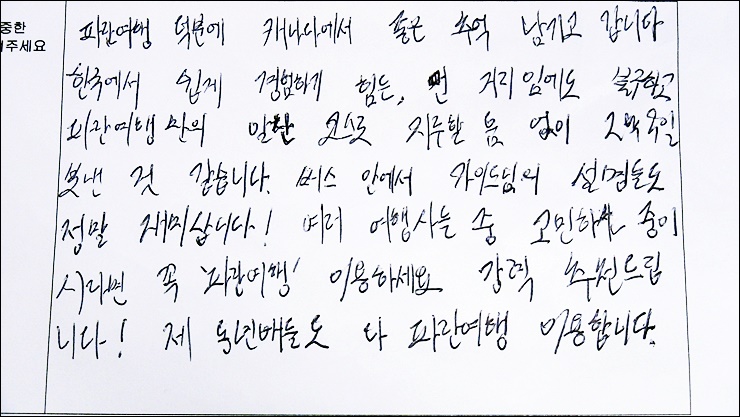 중한
겨주세요
파란여행 덕분에 캐나다에서 좋은 추억 남기고 갑니다
한국에서 쉽게 경험하기 힘든, 먼 거리임에도 불구하고
파란여행만의 알찬 코스로 지루할 틈 없이 2박 3일
보낸 것 같습니다. 버스 안에서 가이드님의 설명들도
정말 재미있습니다! 여러 여행사들 중 고민하신 중이
시라면 꼭 '파란여행' 이용하세요 강력 추천드립
니다! 제 후배들도 다 파란여행 이용합니다.